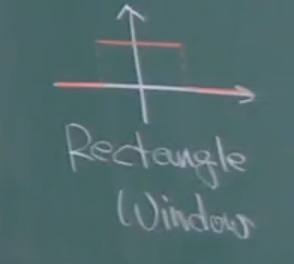 Rectangle
Window